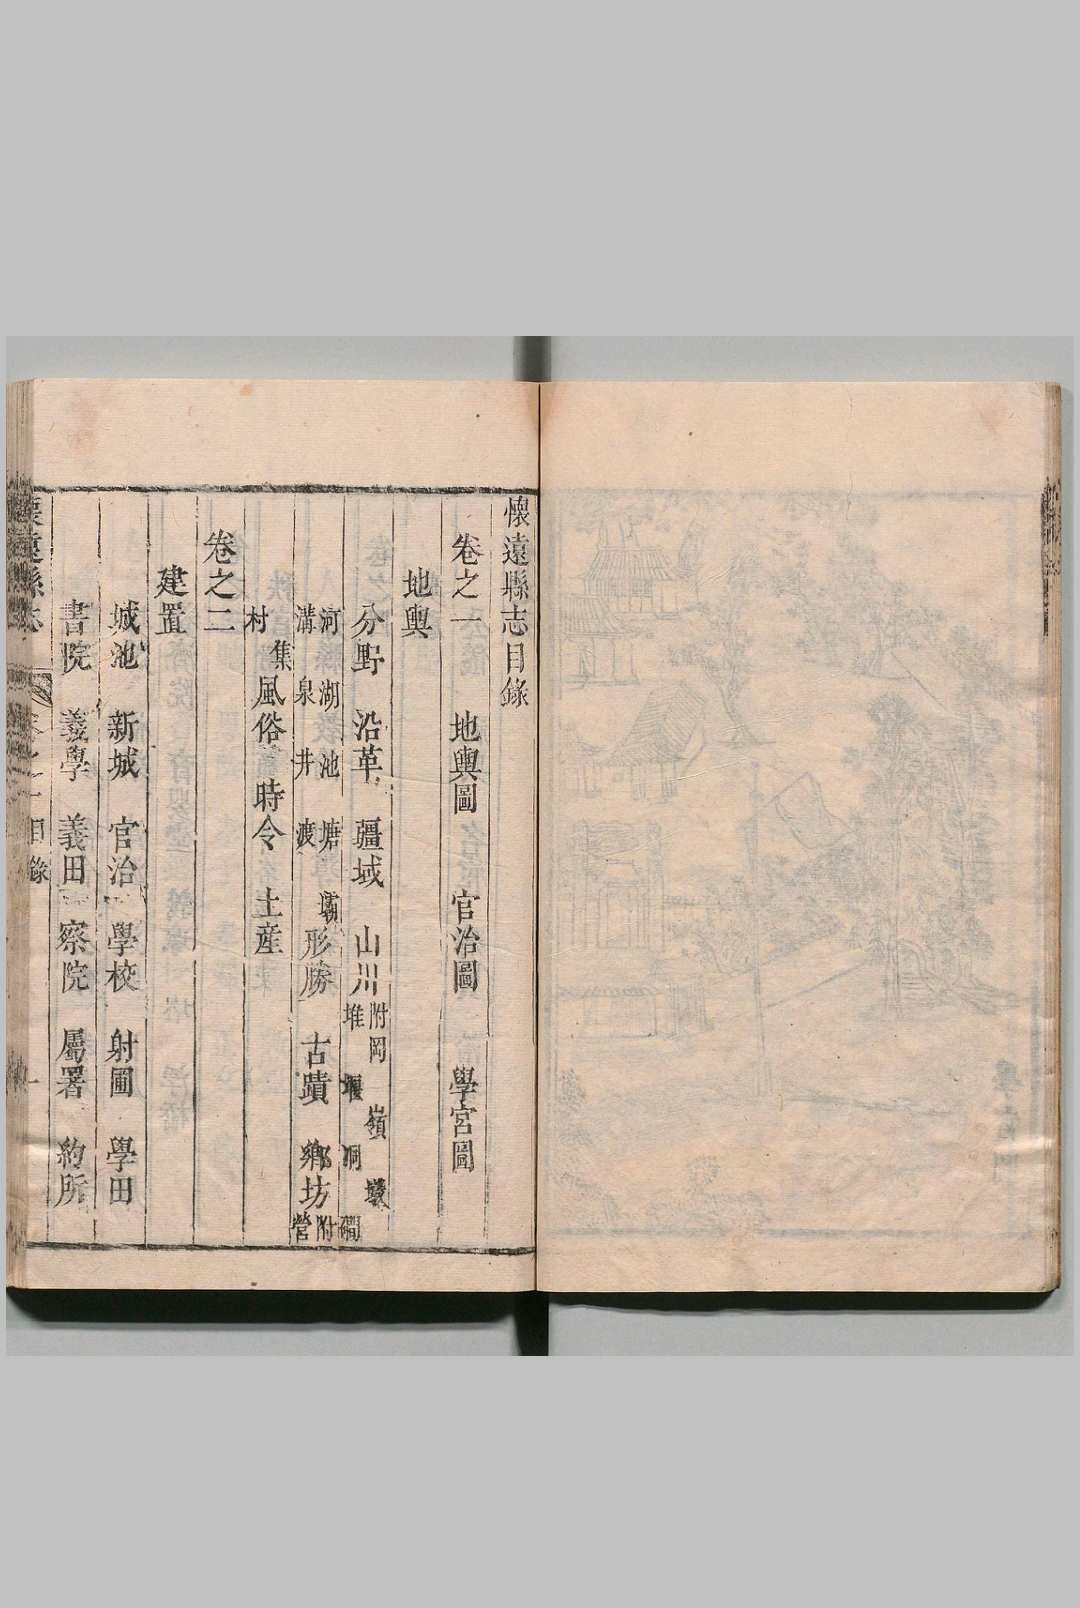 懷遠縣志目錄
卷之一 地輿圖 官治圖 學宮圖
地輿
分野 沿革 疆域 山川 附岡嶺墩澗堆堰洞
河湖池塘壩溝泉井渡 形勝 古蹟 鄉坊 附營
集村 風俗 時令 土産
卷之二
建置
城池 新城 官治 學校 射圃 學田
書院 義學 義田 察院 屬署 約所
懷遠縣志 目錄 一